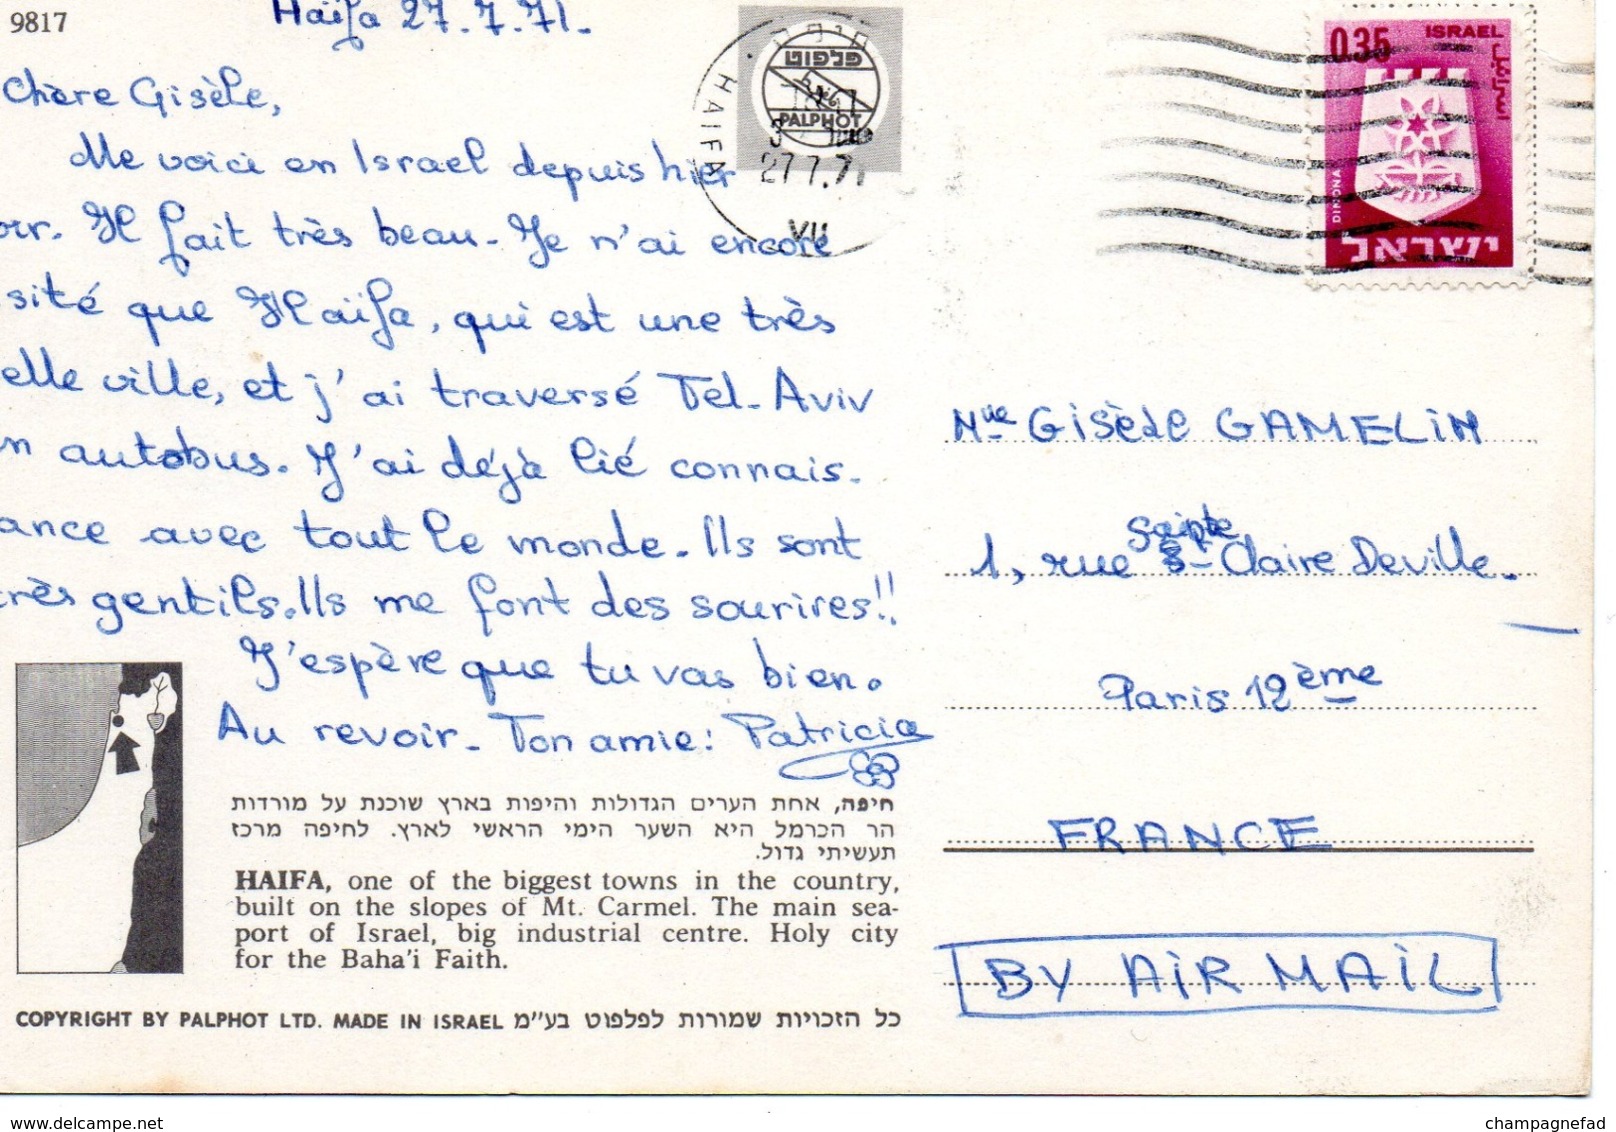 9817
Haïfa 27.7.71.
Chère Gisèle,
Me voici en Israel depuis hier
oir. Il fait très beau. Je n'ai encore
sité que Haïfa, qui est une très
elle ville, et j'ai traversé Tel-Aviv
n autobus. J'ai déjà lié connais-
ance avec tout le monde. Ils sont
très gentils. Ils me font des sourires!!
J'espère que tu vas bien.
Au revoir. Ton amie: Patricia
חיפה, אחת הערים הגדולות והיפות בארץ שוכנת על מורדות
הר הכרמל היא השער הימי הראשי לארץ. לחיפה מרכז
תעשיתי גדול.
HAIFA, one of the biggest towns in the country,
built on the slopes of Mt. Carmel. The main sea-
port of Israel, big industrial centre. Holy city
for the Baha'i Faith.
COPYRIGHT BY PALPHOT LTD. MADE IN ISRAEL כל הזכויות שמורות לפלפוט בע"מ
חיפה
HAIFA
פלפוט
PALPHOT
27.7.71
VII
0.35 ISRAEL
اسرائيل
DIMONA
ישראל
Mlle GISÈLE GAMELIN
1, rue Sainte-Claire Deville.
Paris 12ème
FRANCE
BY AIR MAIL
www.delcampe.net
champagnefad